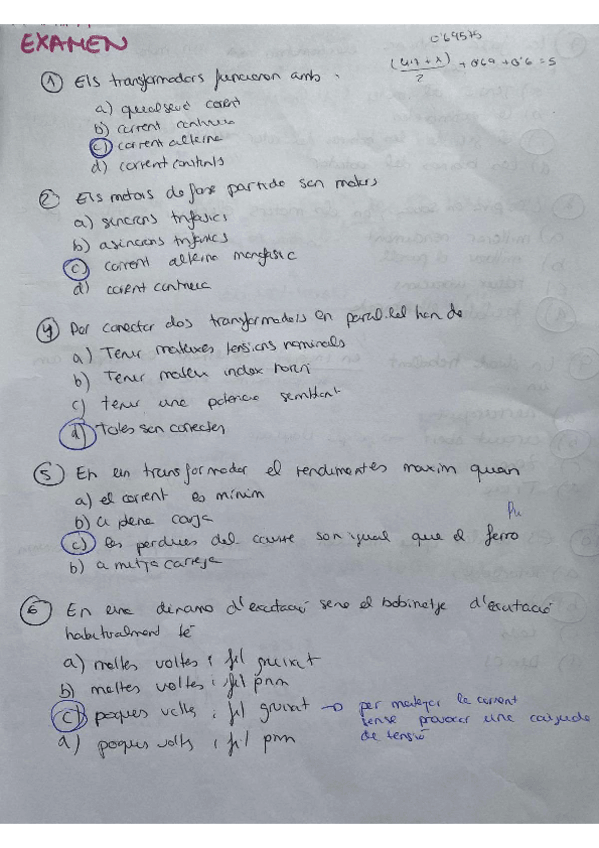 EXAMEN
0'69575
(4'17 + x) / 2 + 0'69 + 0'6 = 5
① Els transformadors funcionen amb :
a) qualsevol corrent
b) corrent continua
c) corrent alterna
d) corrent constants
② Els motors de fase partida son motors
a) sincrons trifasics
b) asincrons trifasics
c) corrent alterna monofasic
d) corrent continua
④ Per conectar dos transformadors en paral.lel han de
a) Tenir mateixes tensions nominals
b) Tenir mateix index horari
c) tenir una potencia semblant
d) Totes son correctes
⑤ En un transformador el rendiment es maxim quan
a) el corrent es minim
b) a plena carga
c) les perdues del coure son igual que el ferro
b) a mitja carrega
⑥ En una dinamo d'excitació serie el bobinatge d'excitació
habitualment té
a) moltes voltes i fil gruixut
b) moltes voltes i fil prim
c) poques voltes i fil gruixut → per mantejar la corrent
sense provocar una caiguda
de tensió
d) poques volts i fil prim